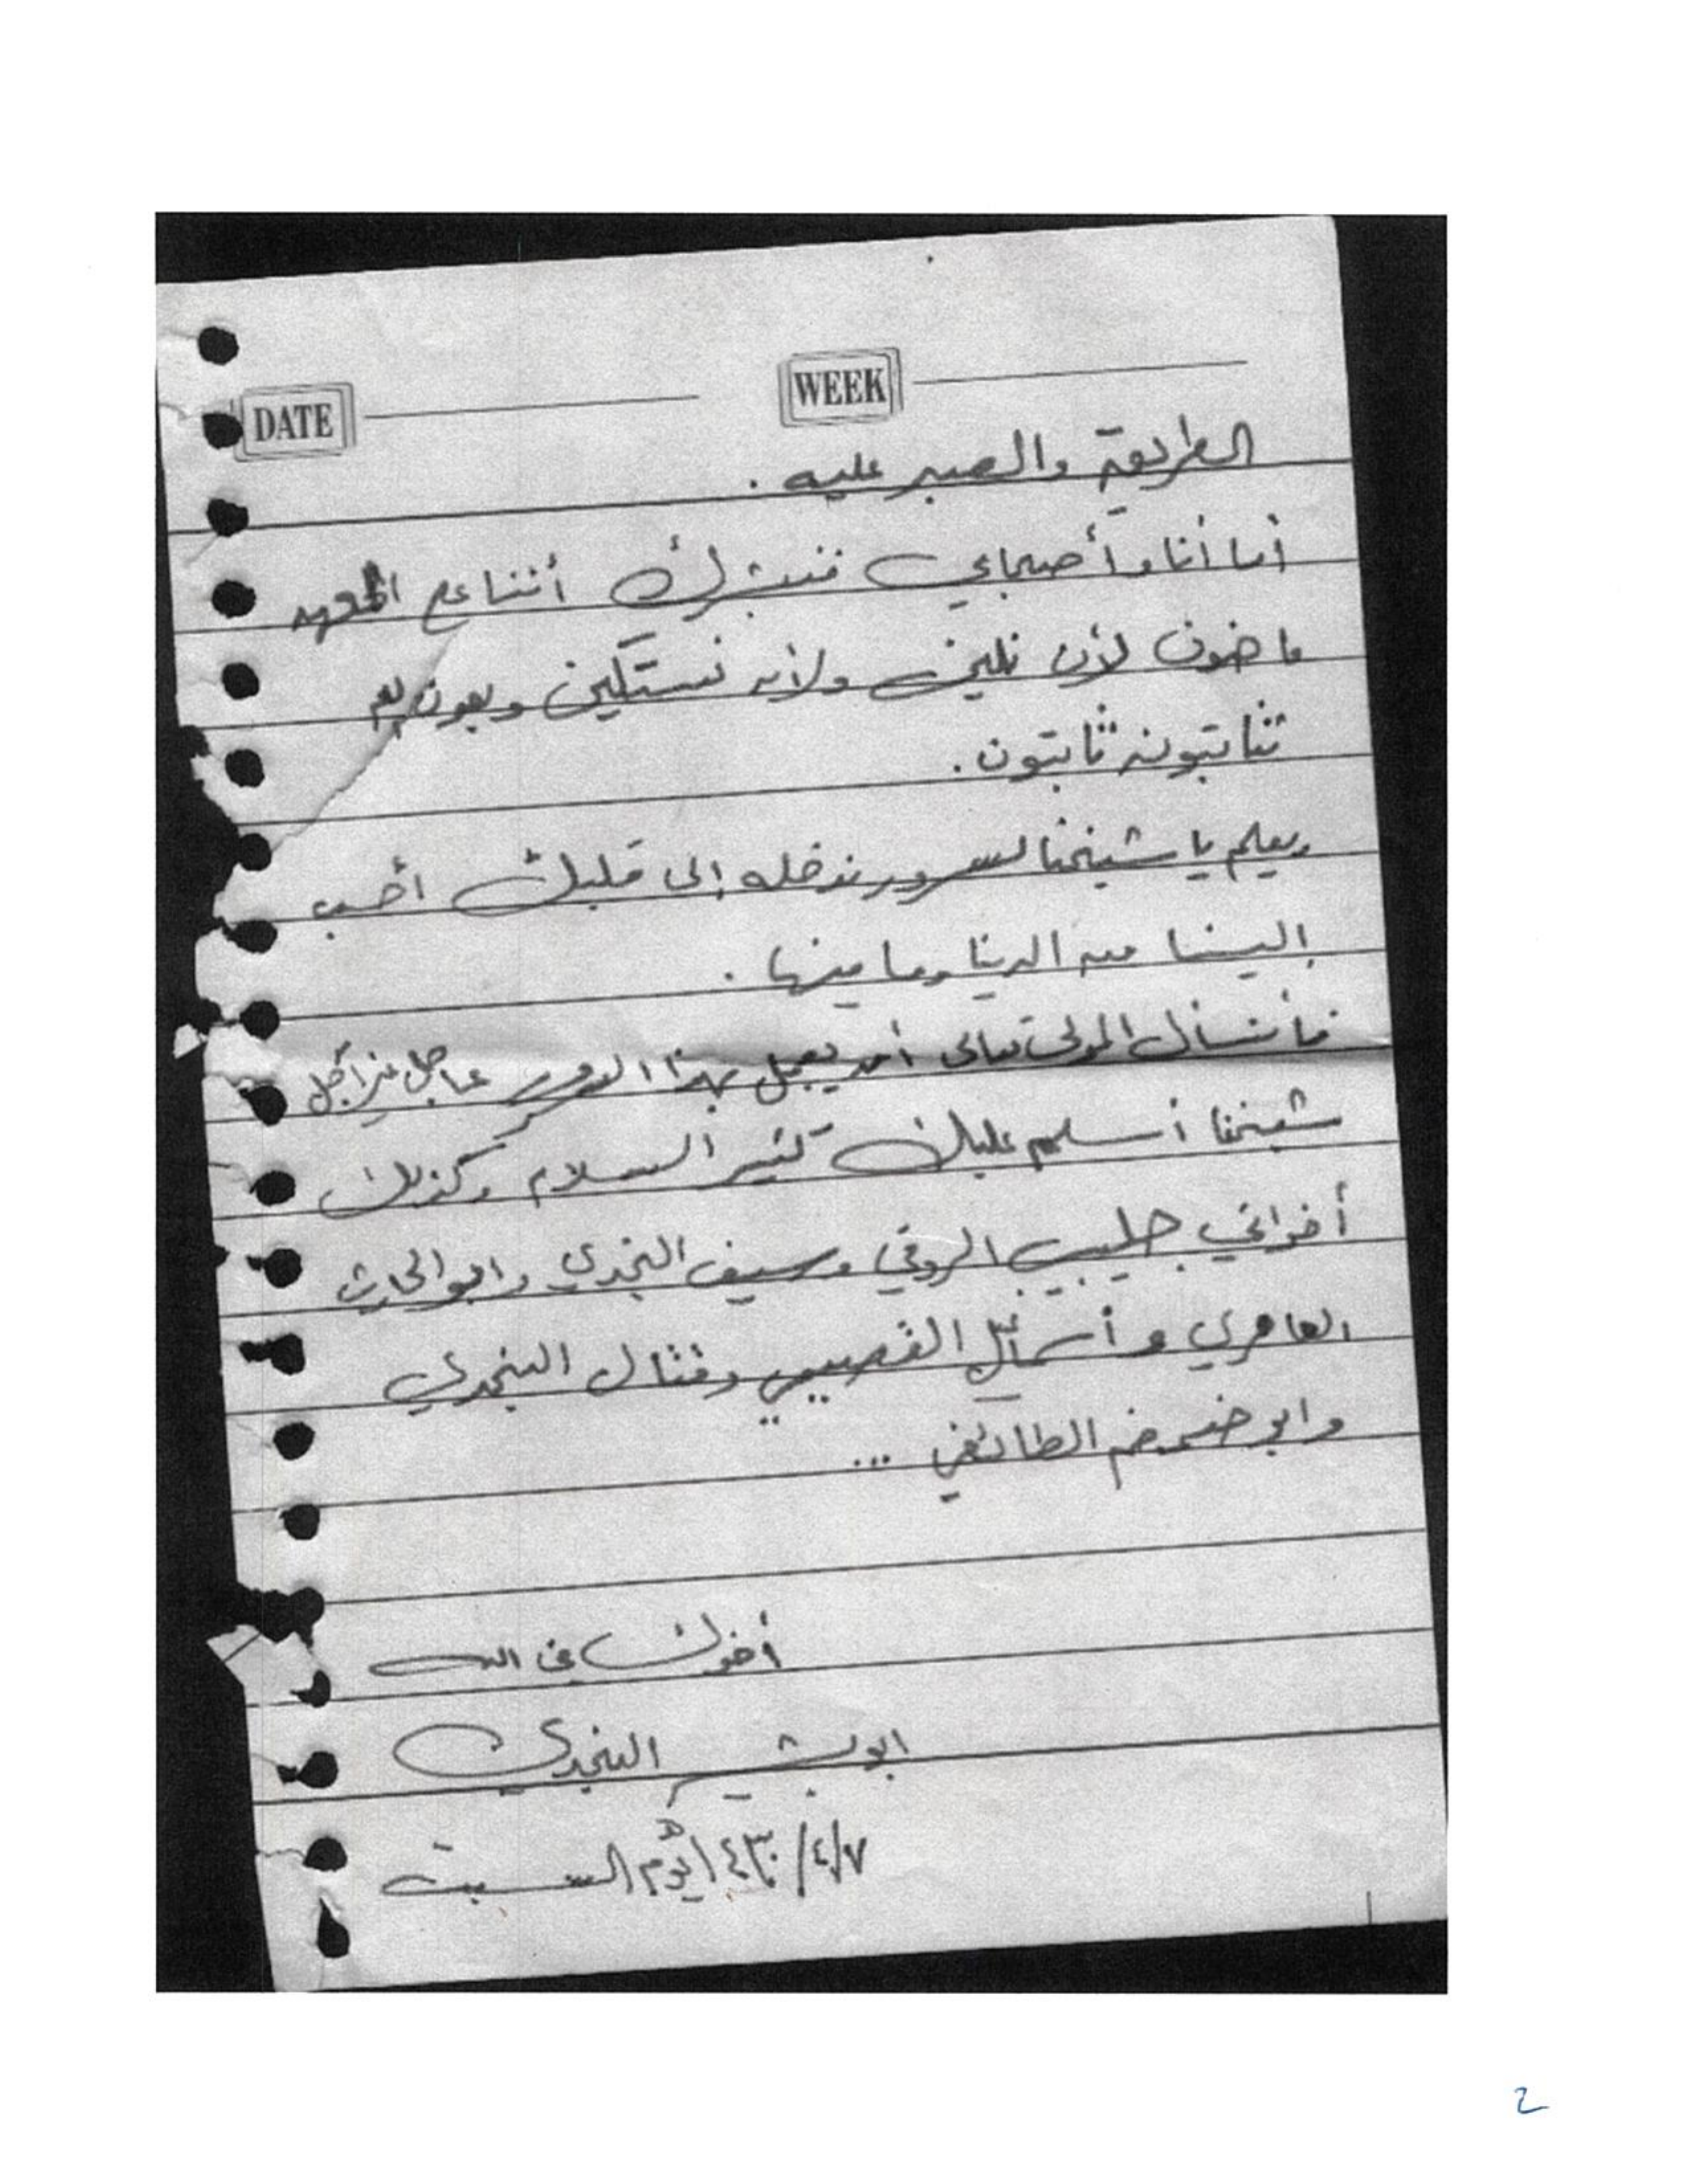 DATE WEEK
الطريق والصبر عليه .
أما أنا وأصحابي فنبشرك أننا على العهد
ماضون لأن نلين ولأن نستكين وبعون الله
ثابتون ثابتون .
ويعلم يا شيخنا لسرور ندخله إلى قلبك أحب
إلينا من الدنيا وما فيها .
فأنسأل المولى تعالى أن يعجل بهذا عاجل غير آجل
شيخنا أسلم عليك كثير السلام وكذلك
أخواني جليبيب الروقي وسيف النجدي وابو الحارث
العامري و القصيمي وقتال النجدي
وابو ضمضم الطائفي ...
أخوك في الله
ابو بشير النجدي
٧/٤/١٤٣٠هـ يوم السبت
2